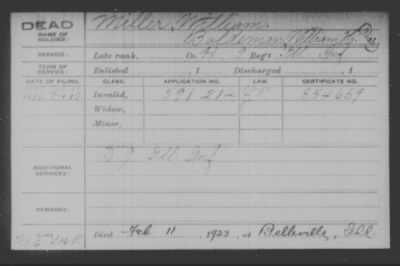 DEAD
NAME OF SOLDIER:
Miller, William
Balldeman, William
SERVICE:
Late rank, Co. Reg't Ill. Inf.
TERM OF SERVICE
Enlisted , 1 Discharged , 1
DATE OF FILING.
CLASS.
APPLICATION NO.
LAW.
CERTIFICATE NO.
Invalid, 591 214 854659
Widow,
Minor,
ADDITIONAL SERVICES:
Ill Inf
REMARKS:
Died Feb 11 1923 at Belleville, Ill.